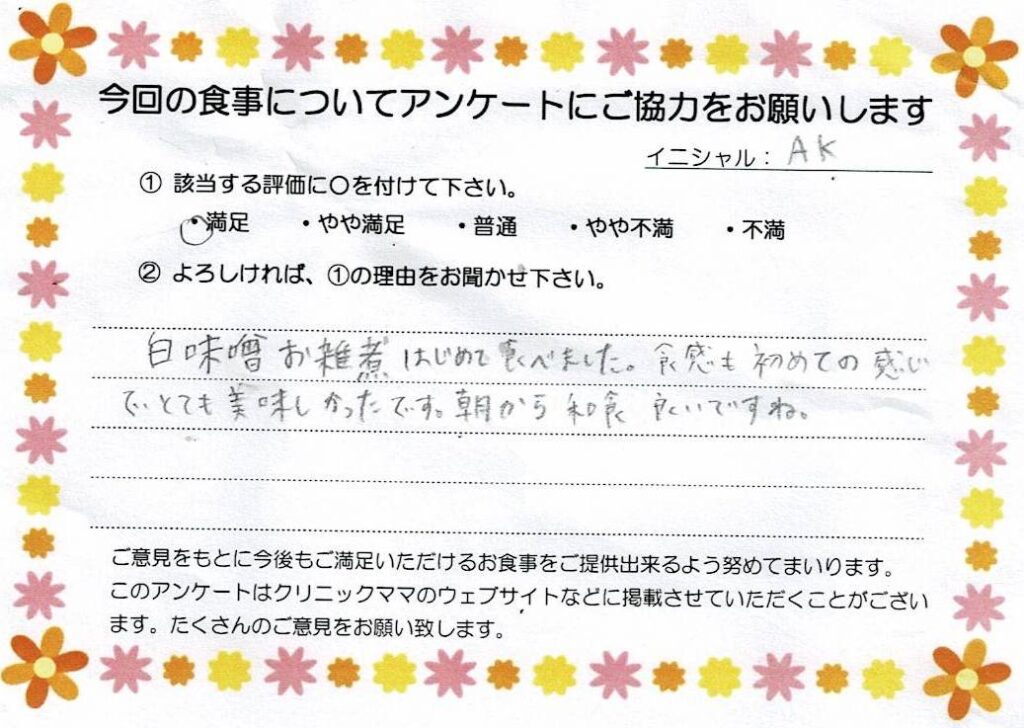 今回の食事についてアンケートにご協力をお願いします
イニシャル： AK
① 該当する評価に〇を付けて下さい。
・満足 ・やや満足 ・普通 ・やや不満 ・不満
② よろしければ、①の理由をお聞かせ下さい。
白味噌お雑煮はじめて食べました。食感も初めての感じ
でとても美味しかったです。朝から和食良いですね。
ご意見をもとに今後もご満足いただけるお食事をご提供出来るよう努めてまいります。
このアンケートはクリニックママのウェブサイトなどに掲載させていただくことがござい
ます。たくさんのご意見をお願い致します。